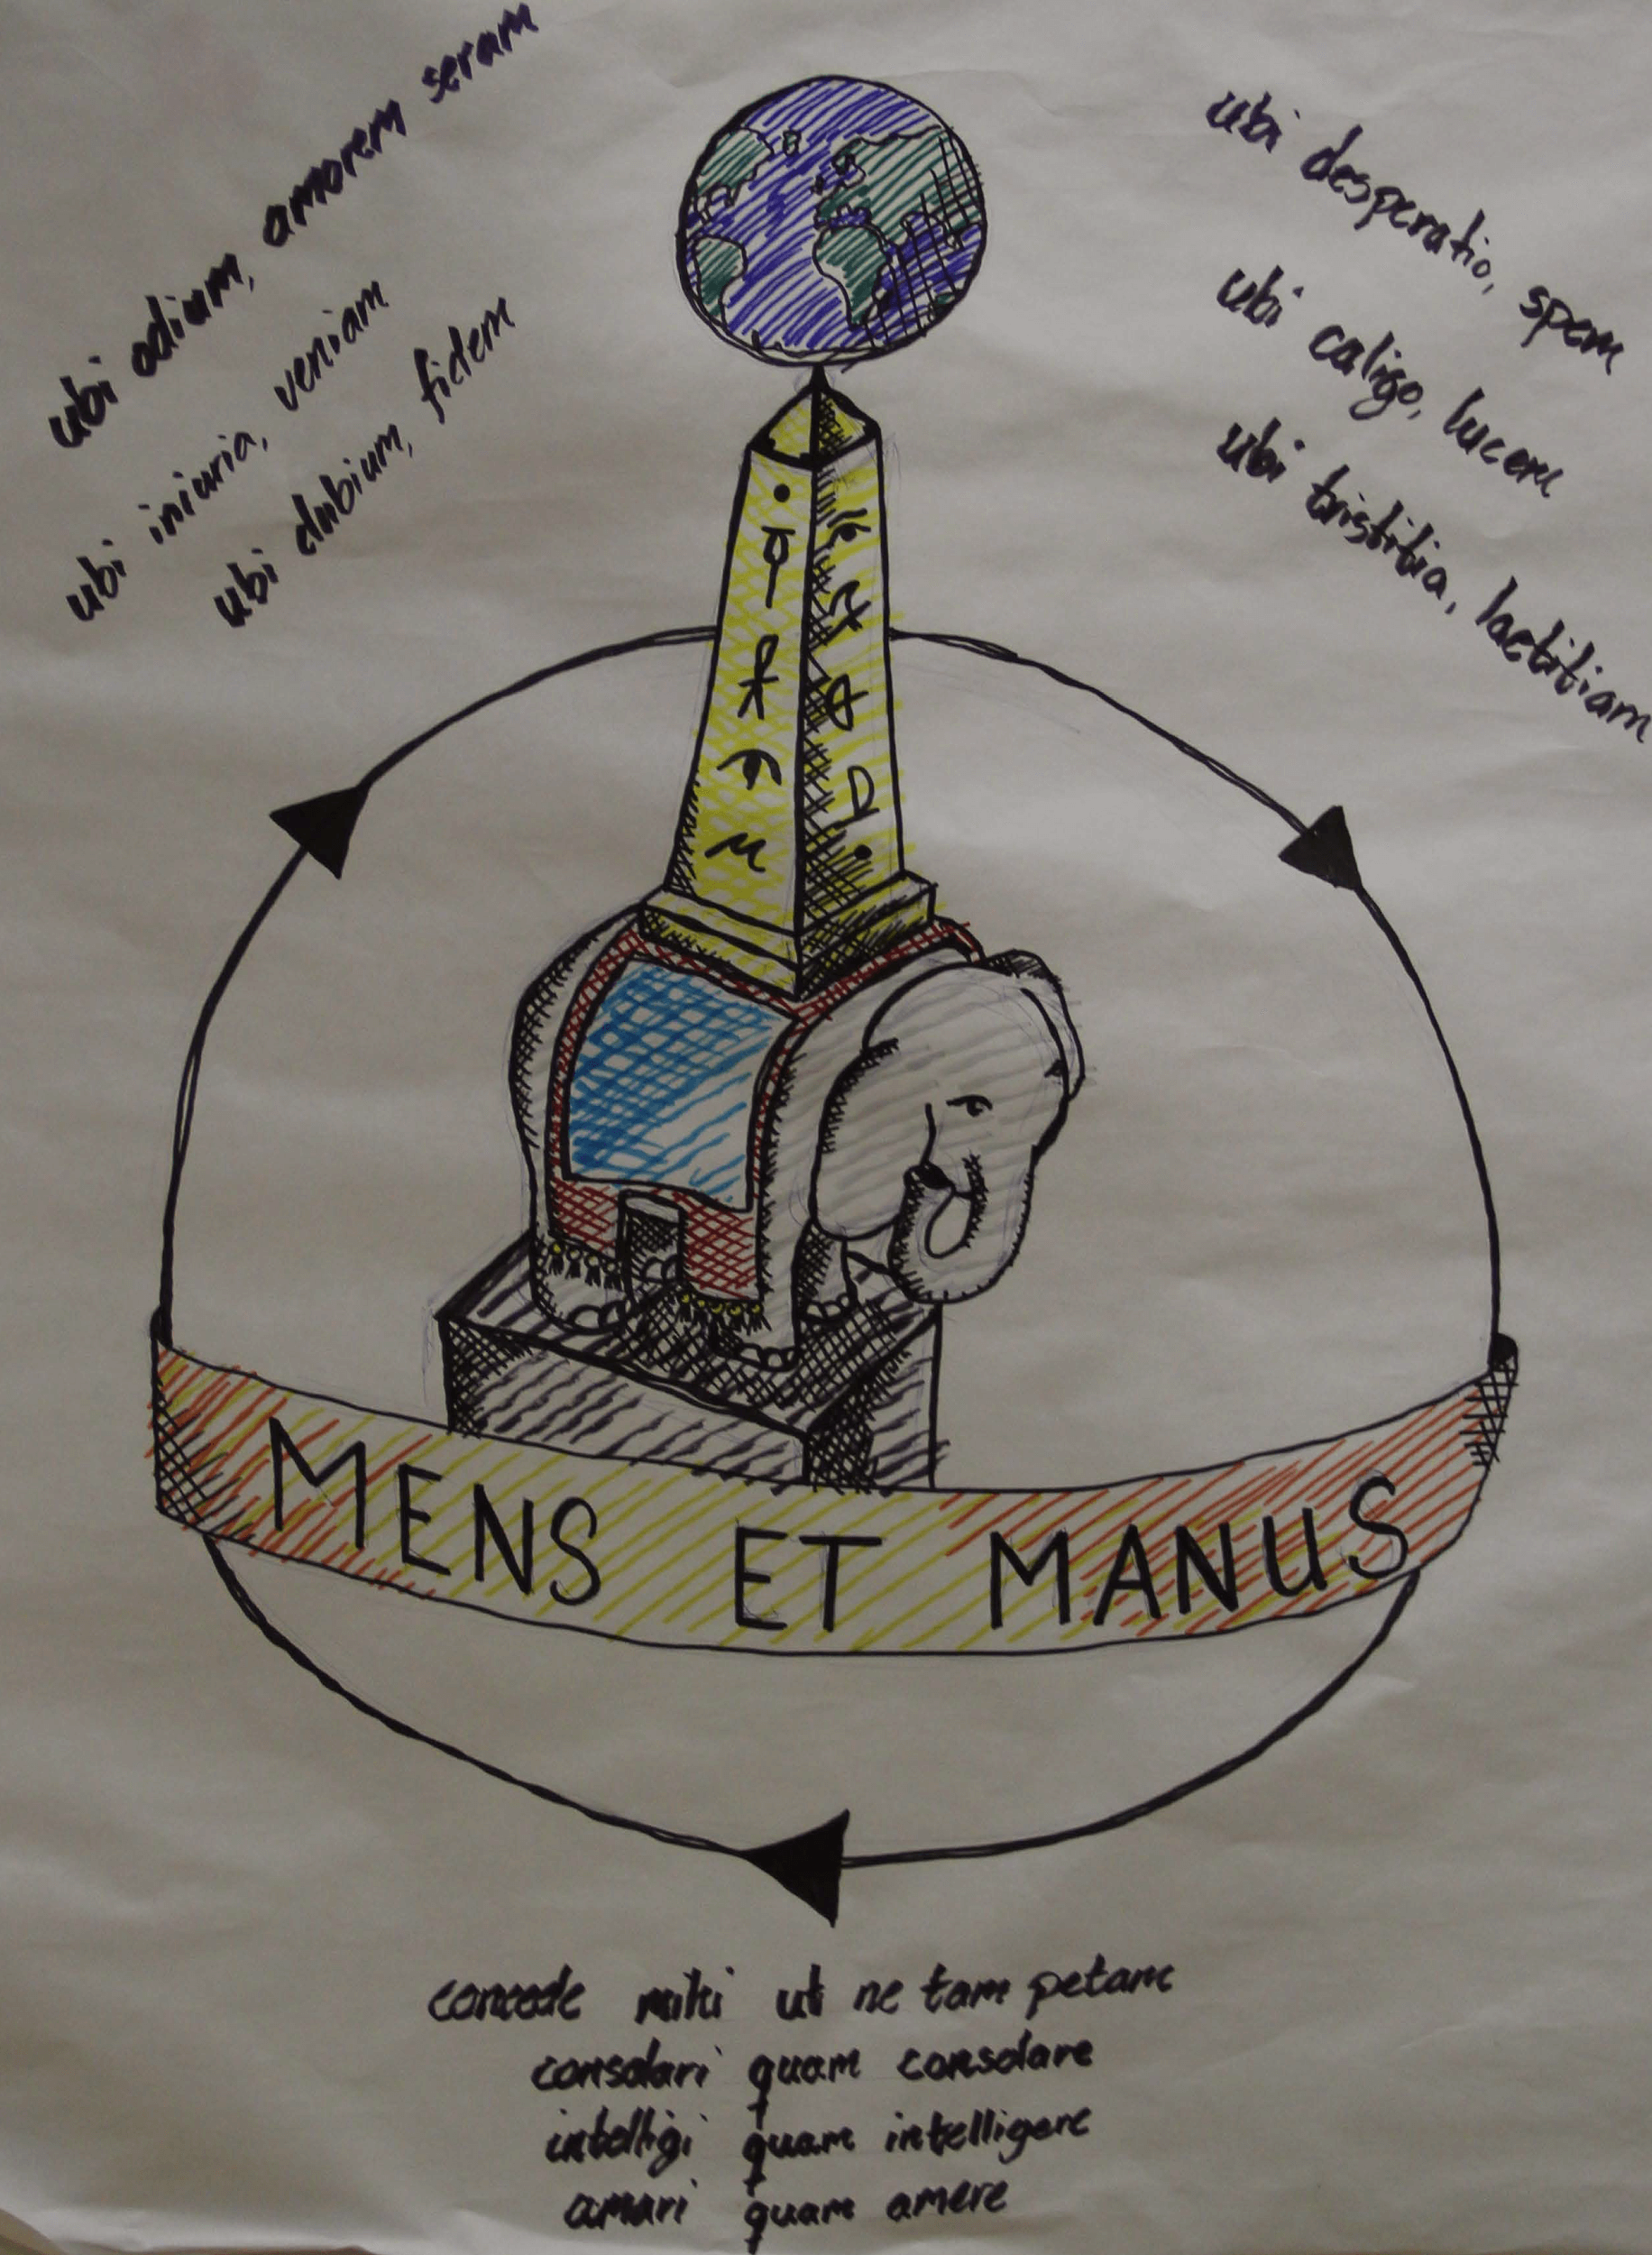 ubi odium, amorem seram
ubi iniuria, veniam
ubi dubium, fidem
ubi desperatio, spem
ubi caligo, lucem
ubi tristitia, laetitiam
MENS ET MANUS
concede mihi ut ne tam petam
consolari quam consolare
intelligi quam intelligere
amari quam amere